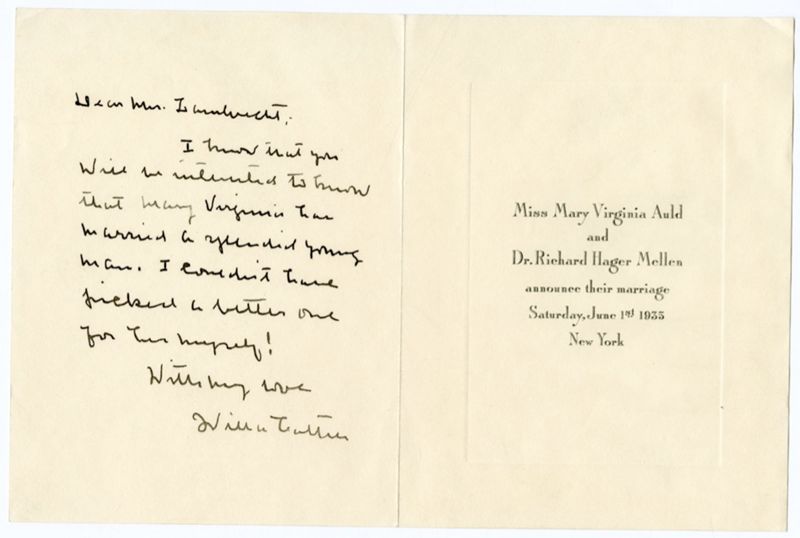 Dear Mrs. Lambrecht;
I know that you
will be interested to know
that Mary Virginia has
married a splendid young
man. I couldn't have
picked a better one
for her myself!
With my love
Willa Cather
Miss Mary Virginia Auld
and
Dr. Richard Hager Mellen
announce their marriage
Saturday, June 1st 1935
New York